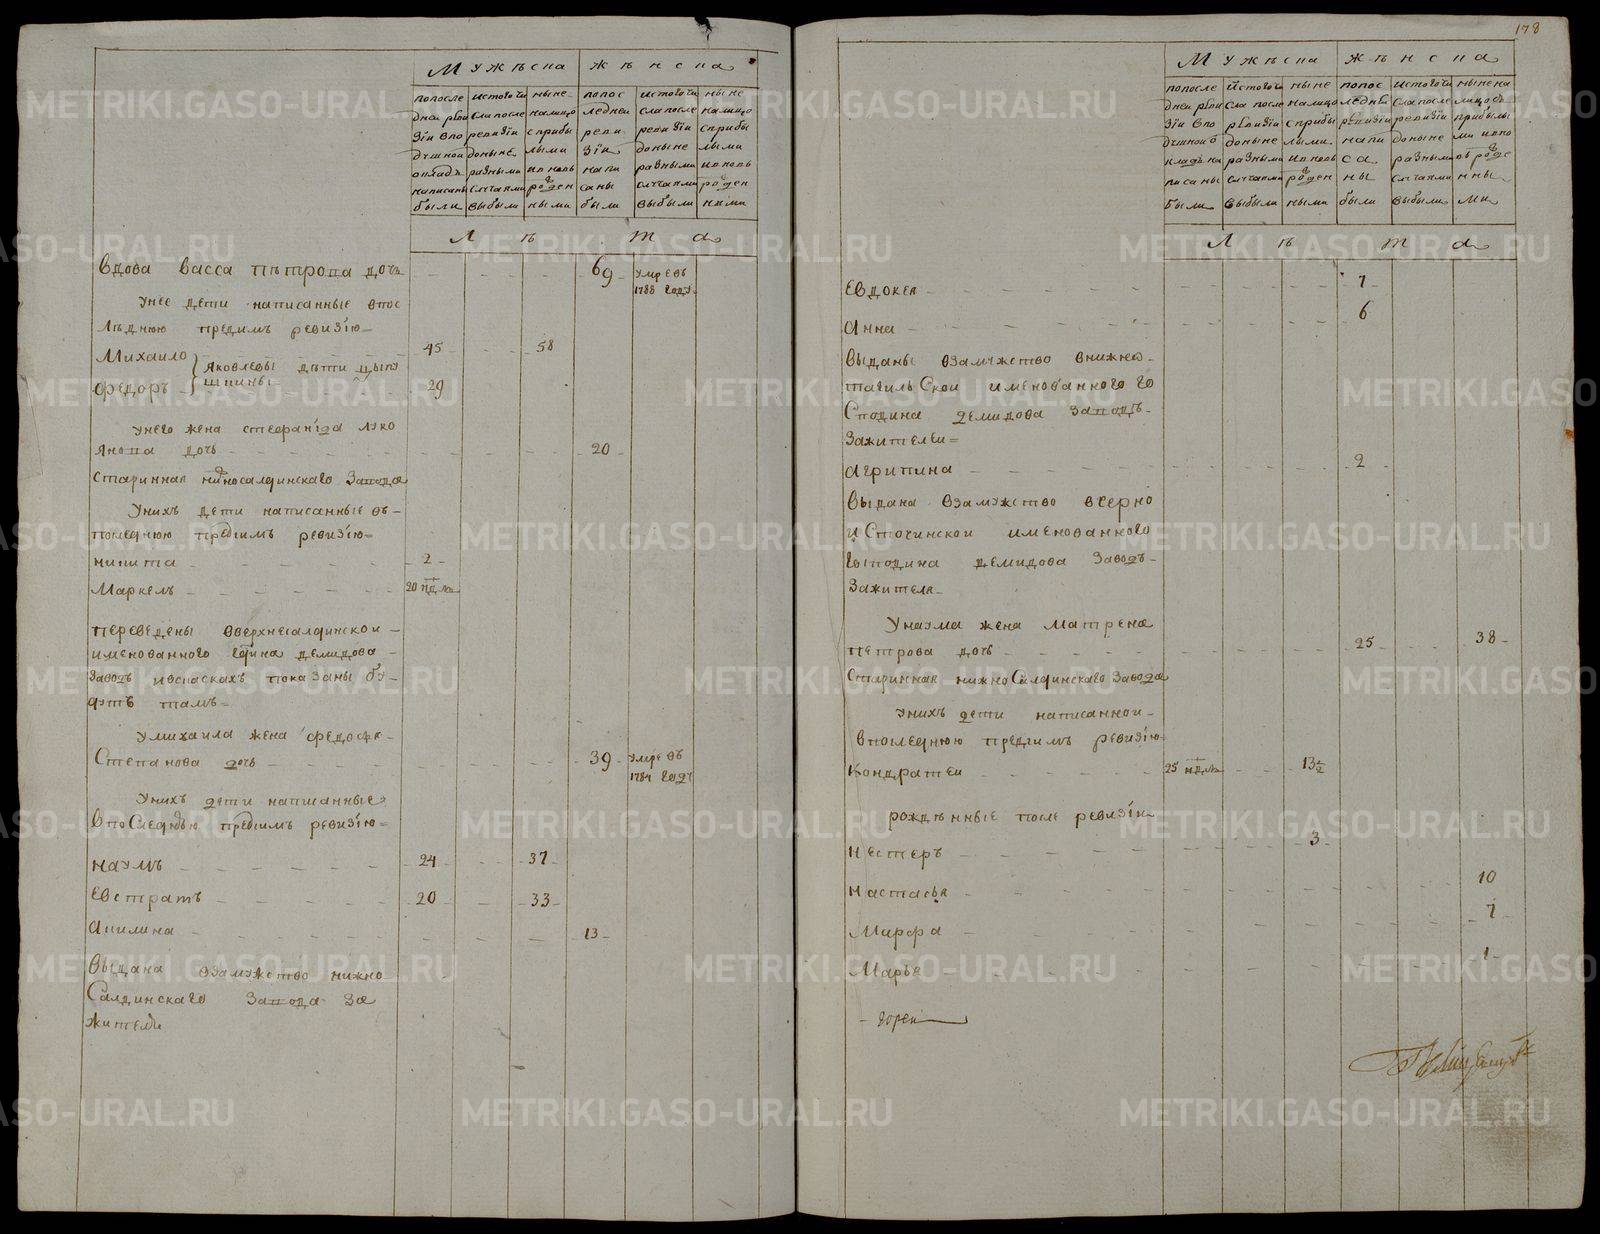 Мужѣска
жѣнска
попосле
дней реви
зіи впо
душной
окладъ
написаны
были
истого чи
сла после
ревизіи
доныне
разными
случаями
выбыли
ныне
налицо
сприбы
лыми
иновь
рожден
ными
попос
ледней
реви
зіи
напи
саны
были
истого чи
сла после
ревизіи
доныне
разными
случаями
выбыли
ныне
налицо
сприбы
лыми
иновь
рожден
ными
Лѣта
вдова васса пѣтрова дочь 69 умре въ
1788 году
унее дети написанные впос
лѣднюю предимъ ревизію
Михаило 45 58
Яковлевы дѣти
федоръ 29
унего жена стефанида луко
янова дочь 20
старинная нижносалдинскаго завода
Унихъ дети написанные въ
последнюю предимъ ревизію
никита 2
Маркелъ 20 нд.ль
переведены вверхнесалдинской
именованного гдина демидова
заводъ ивскаскахъ показаны бу
дутъ тамъ
Умихаила жена федосья
Степанова дочь 39 умре въ
1784 году
Унихъ дети написанные
впоследнюю предимъ ревизію
наумъ 24 37
Евстратъ 20 33
Акилина 13
выдана взамужство нижно
Салдинскаго завода за
жителя
178
Мужѣска
жѣнска
попосле
дней реви
зіи впо
душной о
кладъ на
писаны
были
истого чи
сла после
ревизіи
доныне
разными
случаями
выбыли
ныне
налицо
сприбы
лыми
иновь
рожден
ными
попос
ледней
ревизіи
напи
са
ны
были
истого чи
сла после
ревизіи
доныне
разными
случаями
выбыли
ныне на
лицо съ
прибылы
ми ивно
вь рожде
нны
ми
Лѣта
Евдокея 7
Анна 6
выданы взамужство внижно
тагильской именованного го
Сподина демидова заводъ
зажителей
Агрипина 2
выдана взамужство вчерно
источинской именованного
господина демидова заводъ
зажителя
Унаума жена Матрена
петрова дочь 25 38
Старинная нижноСалдинскаго завода
Унихъ дети написанной
впоследнюю предимъ ревизію
Кондратей 25 нд.ль 13½
рождѣнные после ревизіи
Нестеръ 3
Настасья 10
Марфа 7
Марья 1